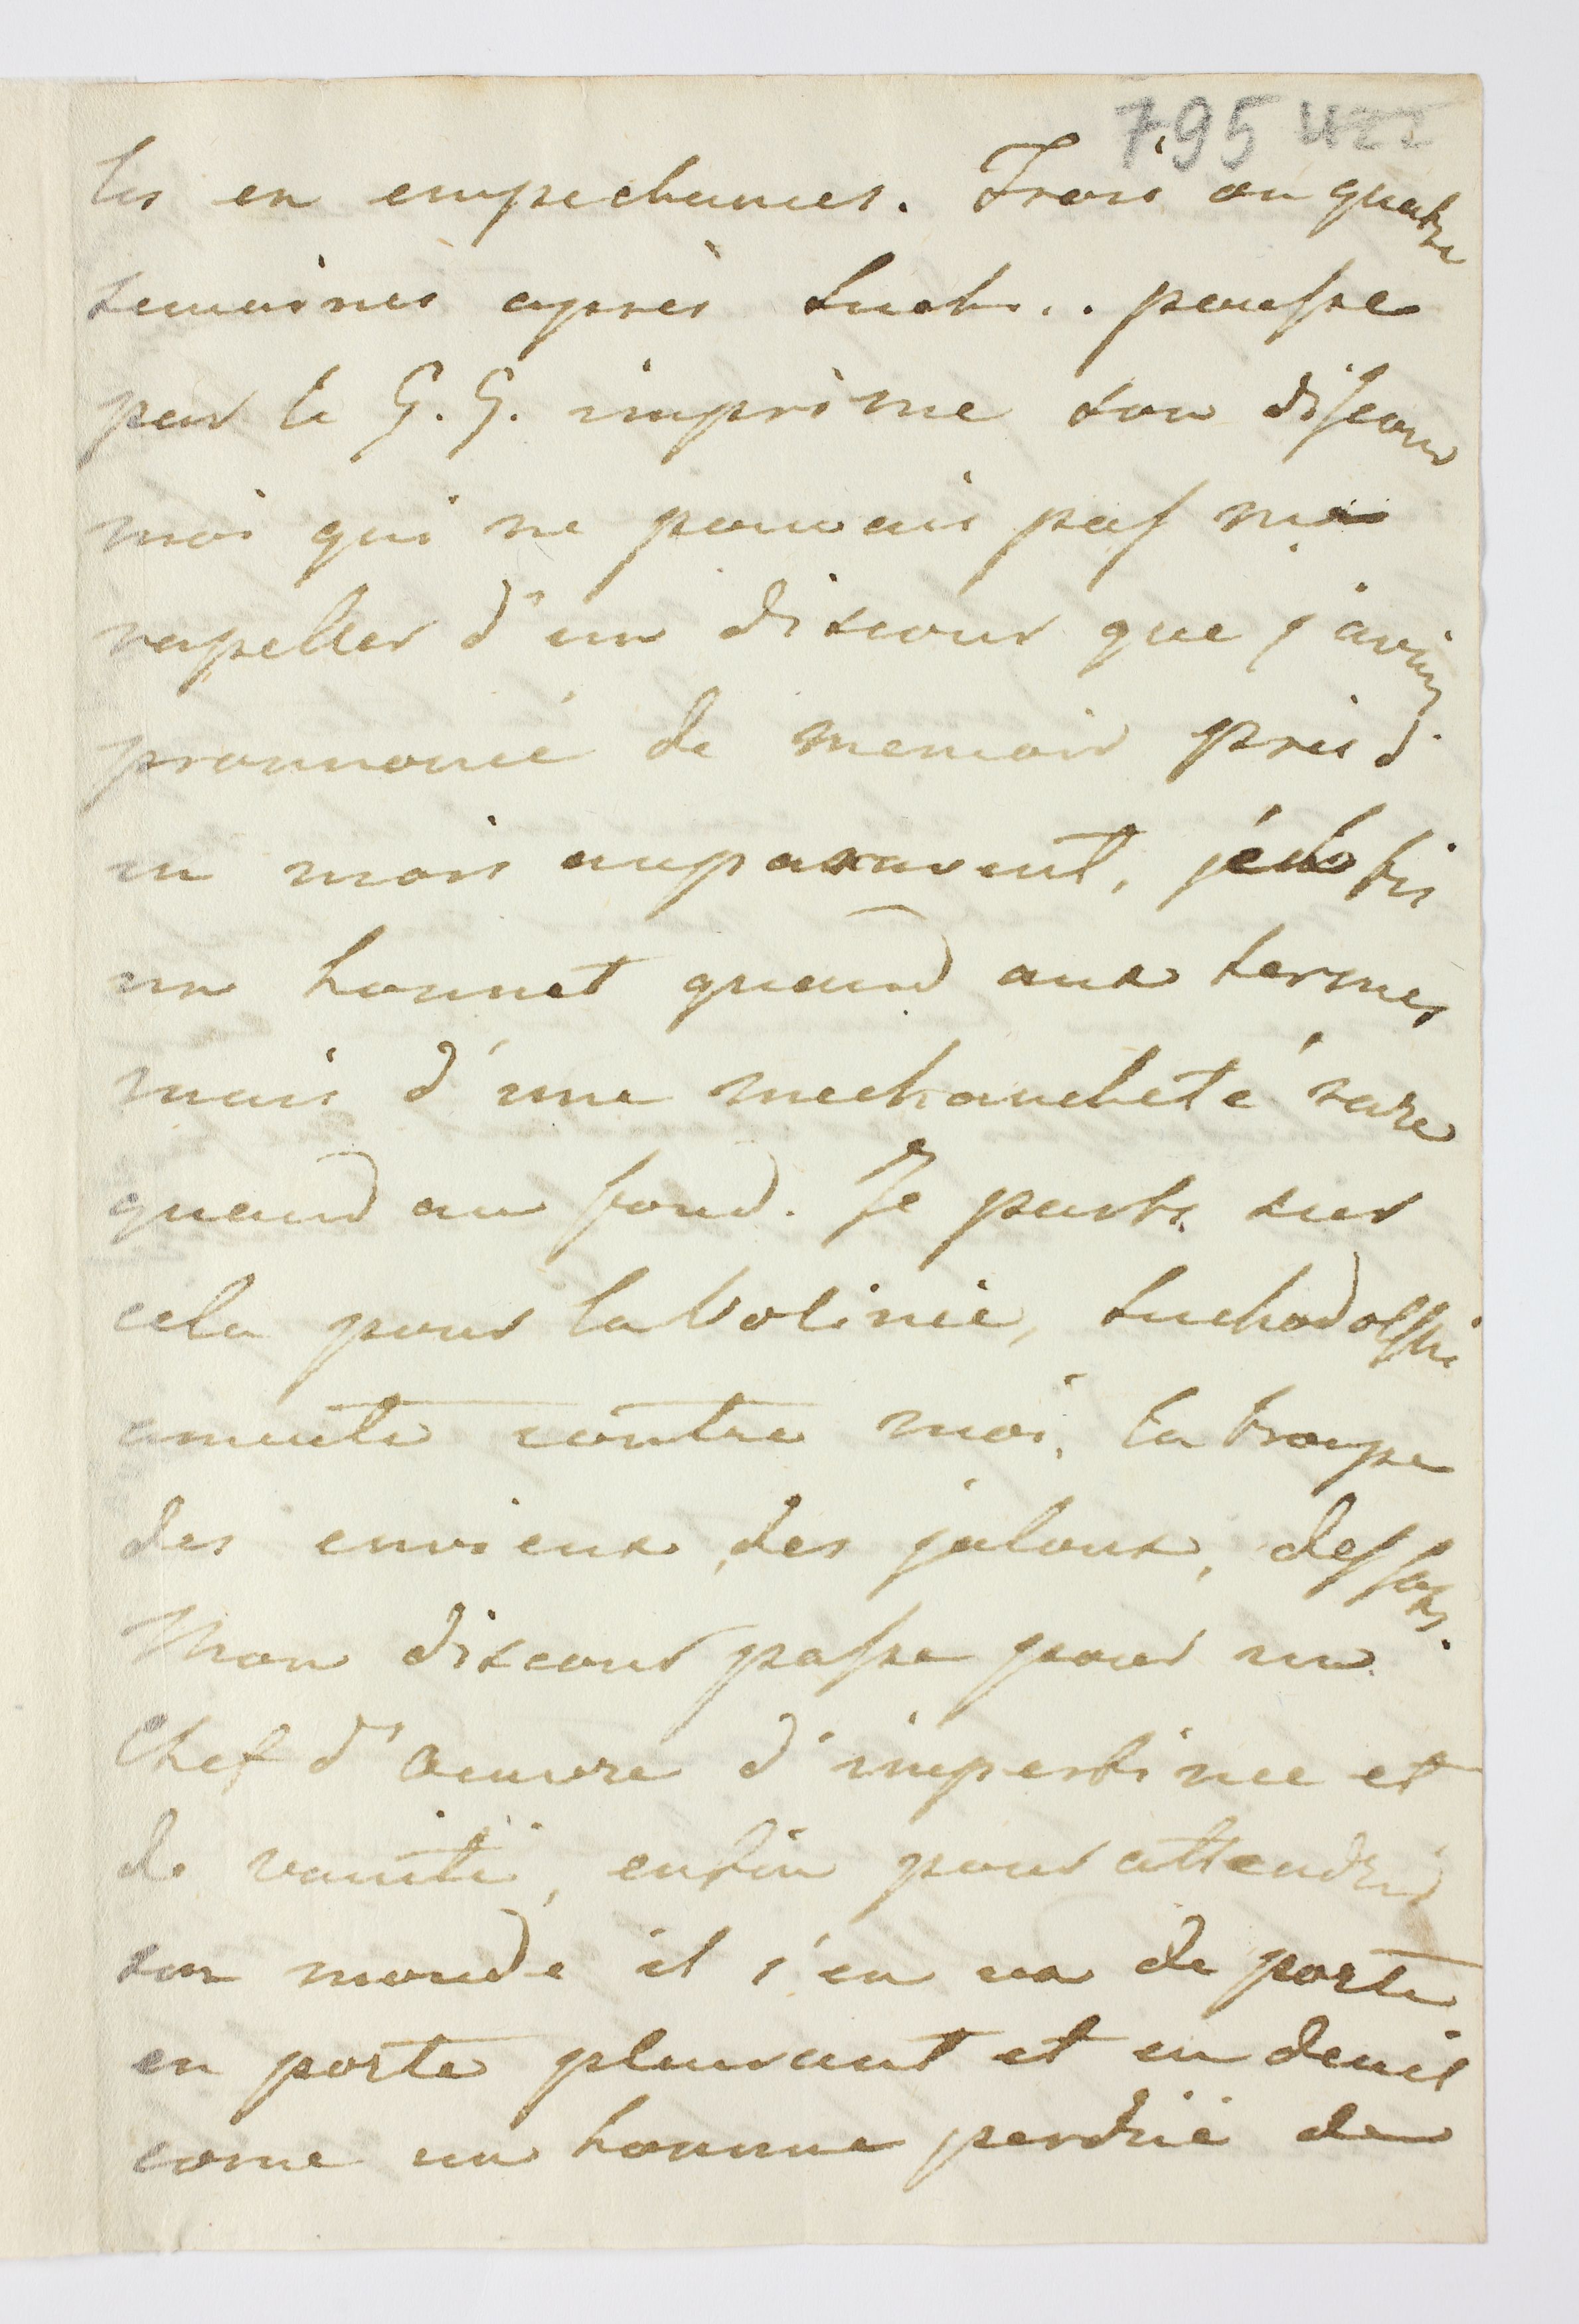 795 422
les en empechames. Trois ou quatre
semaines après Such.. pousse
par le G. G. imprime son discour
moi qui ne pouvais pas me
rapeller d'un discour que j'avais
pronnoncé de memoir pres d'
un mois auparavent, j'en fis
un honnet quand aux termes
mais d'une mechancheté rare
quand au fond. Je parts sur
cela pour la Volinie, Suchodolski
ameute contre moi, la troupe
des envieux, des jaloux, des sots.
Mon discour passe pour un
Chef d'Oeuvre d'impertinee et
de vanité, enfin pour attendrir
son monde il s'en va de porte
en porte pleurant et en deuil
come un homme perdrie de